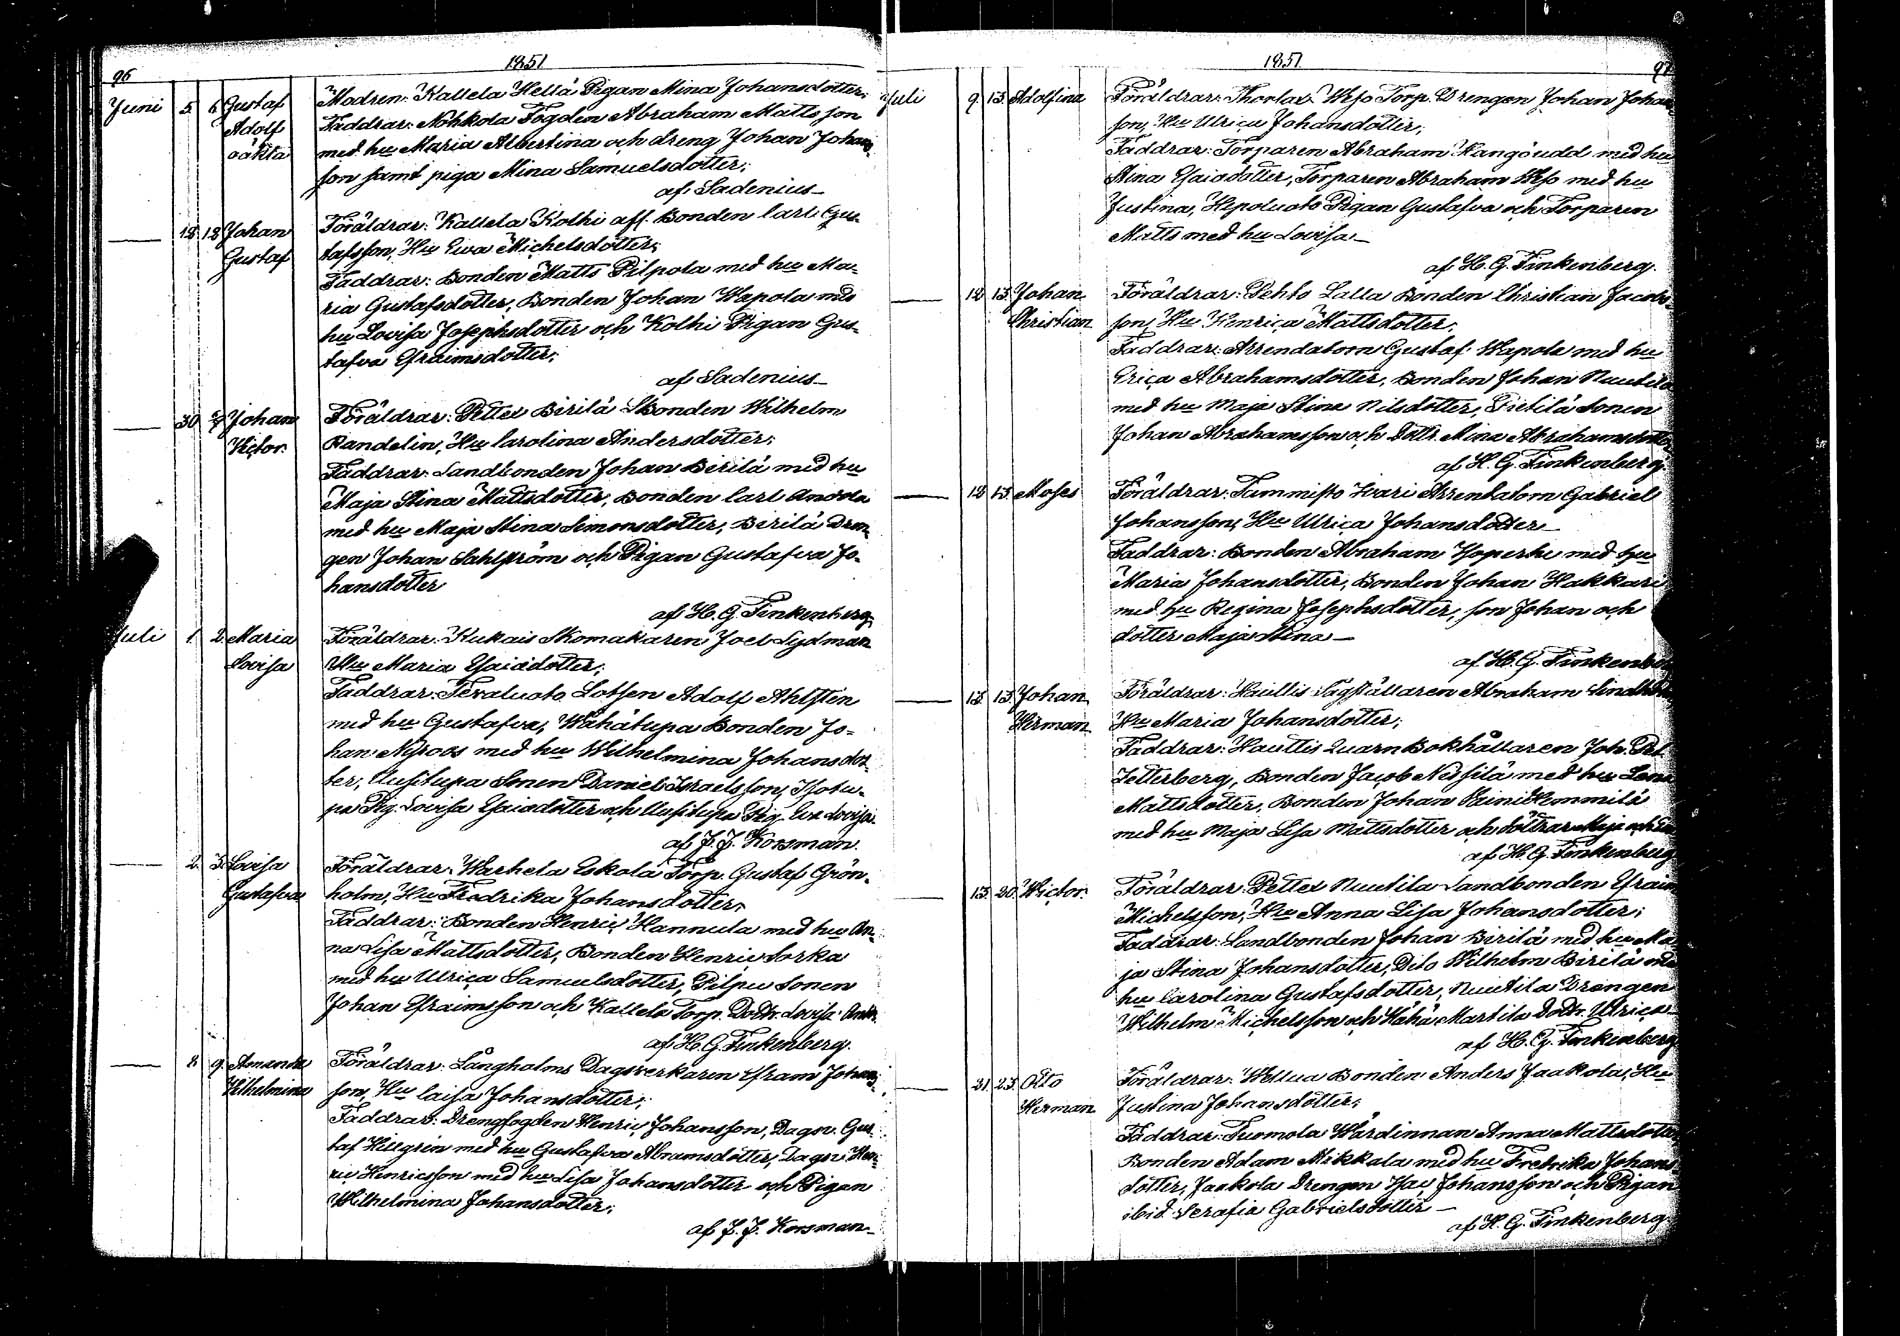 96
1851
Juni 5. 6. Gustaf Adolf oäkta
Modren: Kallela Hellä Pigan Mina Johansdotter;
Faddrar: Nohkola Fogden Abraham Mattsson
med hu Maria Albertina och dreng Johan Johans-
son samt piga Mina Samuelsdotter;
af Sadenius
— 12. 12. Johan Gustaf
Föräldrar: Kallela Kolhi aff. Bonden Carl Gus-
tafsson, Hu Ewa Michelsdotter;
Faddrar: Bonden Matts Pilpola med hu Ma-
ria Gustafsdotter, Bonden Johan Wapola med
hu Lovisa Josephsdotter och Kolhi Pigan Gus-
tafva Efraimsdotter;
af Sadenius
— 30 Johan Victor.
Föräldrar: Petter Birilä Bonden Wilhelm
Randelin, Hu Carolina Andersdotter;
Faddrar: Landbonden Johan Birilä med hu
Maja Stina Mattsdotter, Bonden Carl Andola
med hu Maja Stina Simonsdotter, Birilä Dren-
gen Johan Sahlström och Pigan Gustafva Jo-
hansdotter
af H. G. Finkenberg
Juli 1. 2. Maria Lovisa
Föräldrar: Kukais Skomakaren Joel Sydman
Hu Maria Esaiædotter;
Faddrar: Tervaluoto Lotsen Adolf Ahlsten
med hu Gustafva, Wähätupa Bonden Jo-
han Nyroos med hu Wilhelmina Johansdot-
ter, Uusitupa Sonen Daniel Israelsson,
Pig. Lovisa Esaiædotter och Uusitupa Pig. Eva Lovisa.
af J. J. Korsman.
— 2. 3. Lovisa Gustafva
Föräldrar: Warhela Eskola Torp. Gustaf Grön-
holm, Hu Fredrika Johansdotter;
Faddrar: Bonden Henric Hannula med hu An-
na Lisa Mattsdotter, Bonden Henric Sorka
med hu Ulrica Samuelsdotter, Pilpu Sonen
Johan Efraimsson och Kallela Torp. Dottr. Lovisa
af H. G. Finkenberg.
— 8. 9. Amanda Wilhelmina
Föräldrar: Långholms Dagsverkaren Efram Johans-
son, Hu Caisa Johansdotter;
Faddrar: Drengfogden Henric Johansson, Dagsv. Gus-
taf Hellgrén med hu Gustafva Abramsdotter, Dagsv. Hen-
ric Henricsson med hu Lisa Johansdotter och Pigan
Wilhelmina Johansdotter;
af J. J. Korsman
1851
97
Juli 9. 13. Adolfina
Föräldrar: Thorlax Weso Torp. Drengen Johan Johans-
son, Hu Ulrica Johansdotter;
Faddrar: Torparen Abraham Kangöudd med hu
Stina Esaiædotter, Torparen Abraham Weso med hu
Justina, Hepoluoto Pigan Gustafva och Torparen
Matts med hu Lovisa
af H. G. Finkenberg.
— 12. 13. Johan Christian
Föräldrar: Lehto Lalla Bonden Christian Jacobs-
son, Hu Henrica Mattsdotter;
Faddrar: Arrendatorn Gustaf Wapola med hu
Erica Abrahamsdotter, Bonden Johan Nuutila
med hu Maja Stina Nilsdotter, Pietilä Sonen
Johan Abrahamsson och Dottr. Mina Abrahamsdotter
af H. G. Finkenberg.
— 12 13. Moses
Föräldrar: Tammisto Ivari Arrentatorn Gabriel
Johansson, Hu Ulrica Johansdotter
Faddrar: Bonden Abraham Yoperhe med hu
Maria Johansdotter, Bonden Johan Hakkari
med hu Regina Josephsdotter, son Johan och
dotter Maja Stina
af H. G. Finkenberg
— 13. 13. Johan Herman
Föräldrar: Hauttis Sågställaren Abraham
Hu Maria Johansdotter;
Faddrar: Hauttis Quarn Bokhållaren Joh. Pet.
Zetterberg, Bonden Jacob Nissilä med hu Lena
Mattsdotter, Bonden Johan Heinikkommilä
med hu Maja Lisa Mattsdotter och döttrar Maja och
af H. G. Finkenberg
— 13. 20. Wictor.
Föräldrar: Petter Nuutila Landbonden Efraim
Michelsson, Hu Anna Lisa Johansdotter;
Faddrar: Landbonden Johan Birilä med hu Ma-
ja Stina Johansdotter, Dito Wilhelm Birilä med
hu Carolina Gustafsdotter, Nuutila Drängen
Wilhelm Michelsson och Wähä Martila Dottr. Ulrica
af H. G. Finkenberg
— 21. 23. Otto Herman
Föräldrar: Wellua Bonden Anders Jaakola, Hu
Justina Johansdotter;
Faddrar: Tuomola Wärdinnan Anna Mattsdotter
Bonden Adam Mikkala med hu Fredrika Johans-
dotter, Jaakola Drengen Isac Johansson och Pigan
ibid. Serafia Gabrielsdotter
af H. G. Finkenberg